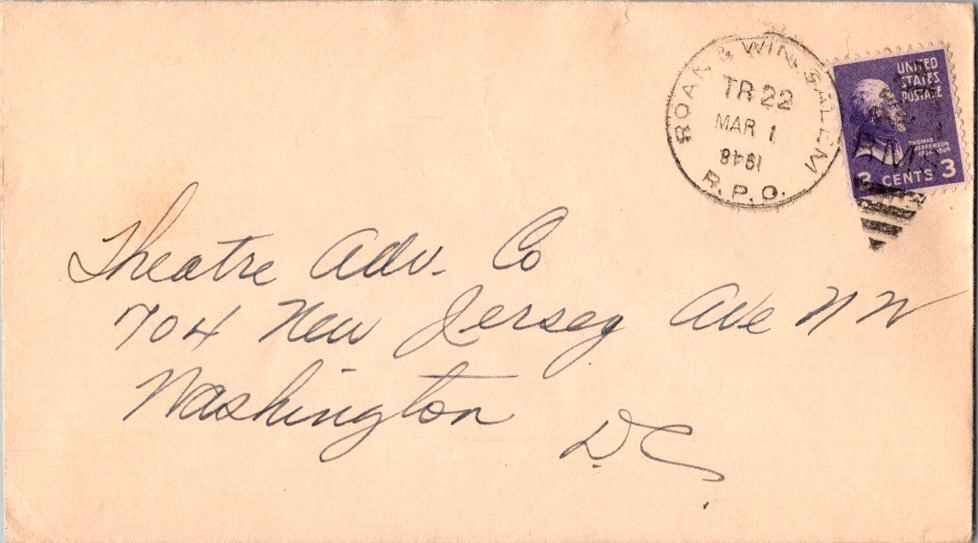 ROAN & WIN-SALEM
TR 22
MAR 1
1948
R.P.O.
UNITED
STATES
POSTAGE
THOMAS
JEFFERSON
RMS
3 CENTS 3
Theatre Adv. Co
704 New Jersey Ave NW
Washington
D.C.